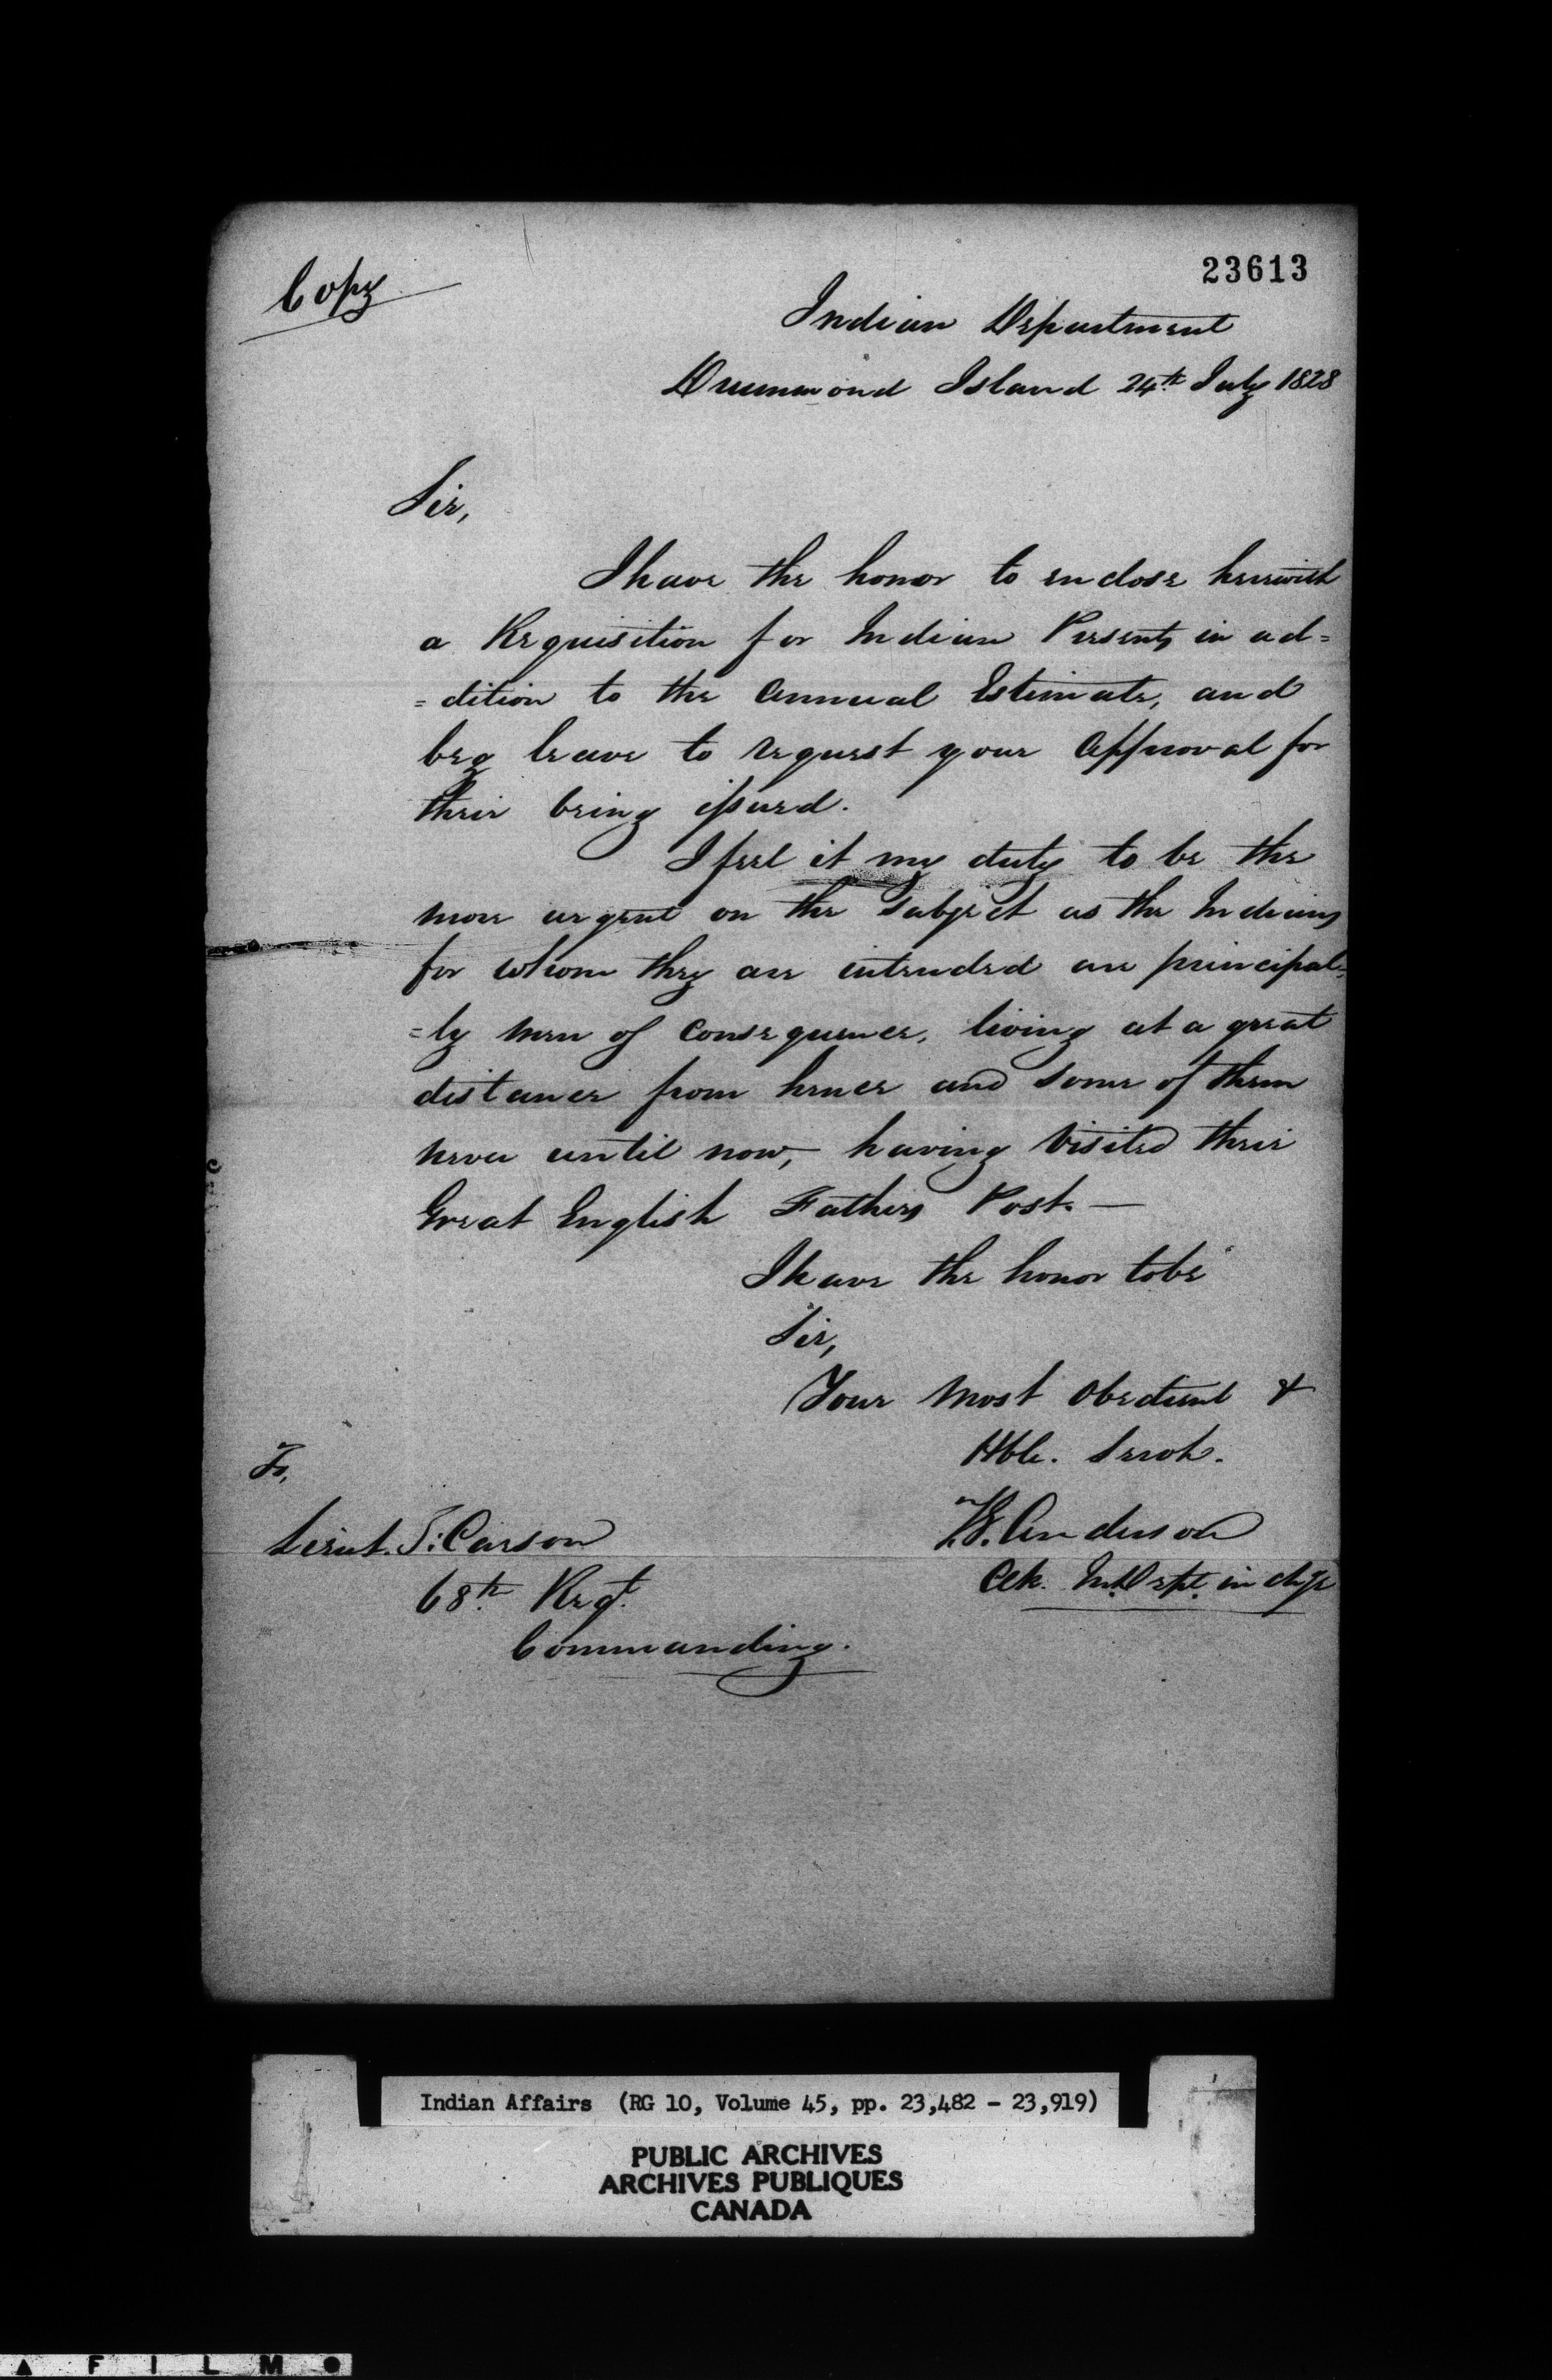 Copy
23613
Indian Department
Drummond Island 24th July 1828
Sir,
I have the honor to enclose herewith
a Requisition for Indian Presents in ad=
=dition to the Annual Estimate, and
beg leave to request your Approval for
their being issued.
I feel it my duty to be the
more urgent on the Subject as the Indians
for whom they are intended are principal=
=ly men of Consequence, living at a great
distance from hence and some of them
never until now, having Visited their
Great English Fathers Post. —
I have the honor to be
Sir,
Your Most Obedient &
Hble. Servt.
To,
Lieut. T: Carson
68th Regt.
Commanding.
T.G. Anderson
Clk. In. Dept. in chge
Indian Affairs (RG 10, Volume 45, pp. 23,482 - 23,919)
PUBLIC ARCHIVES
ARCHIVES PUBLIQUES
CANADA
FILM